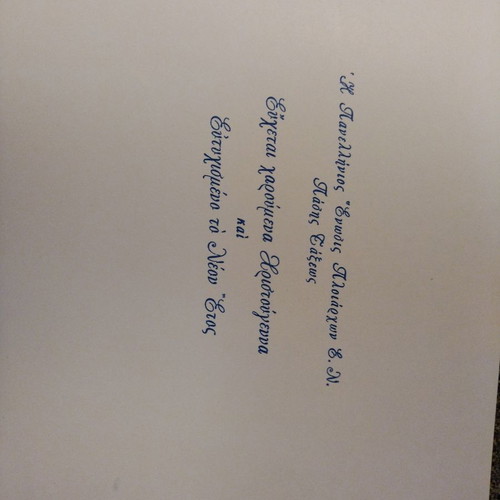 Ἡ Πανελλήνιος Ἕνωσις Πλοιάρχων Ε. Ν.
Πάσης Τάξεως
Εὔχεται χαρούμενα Χριστούγεννα
καὶ
Εὐτυχισμένο τὸ Νέον Ἔτος